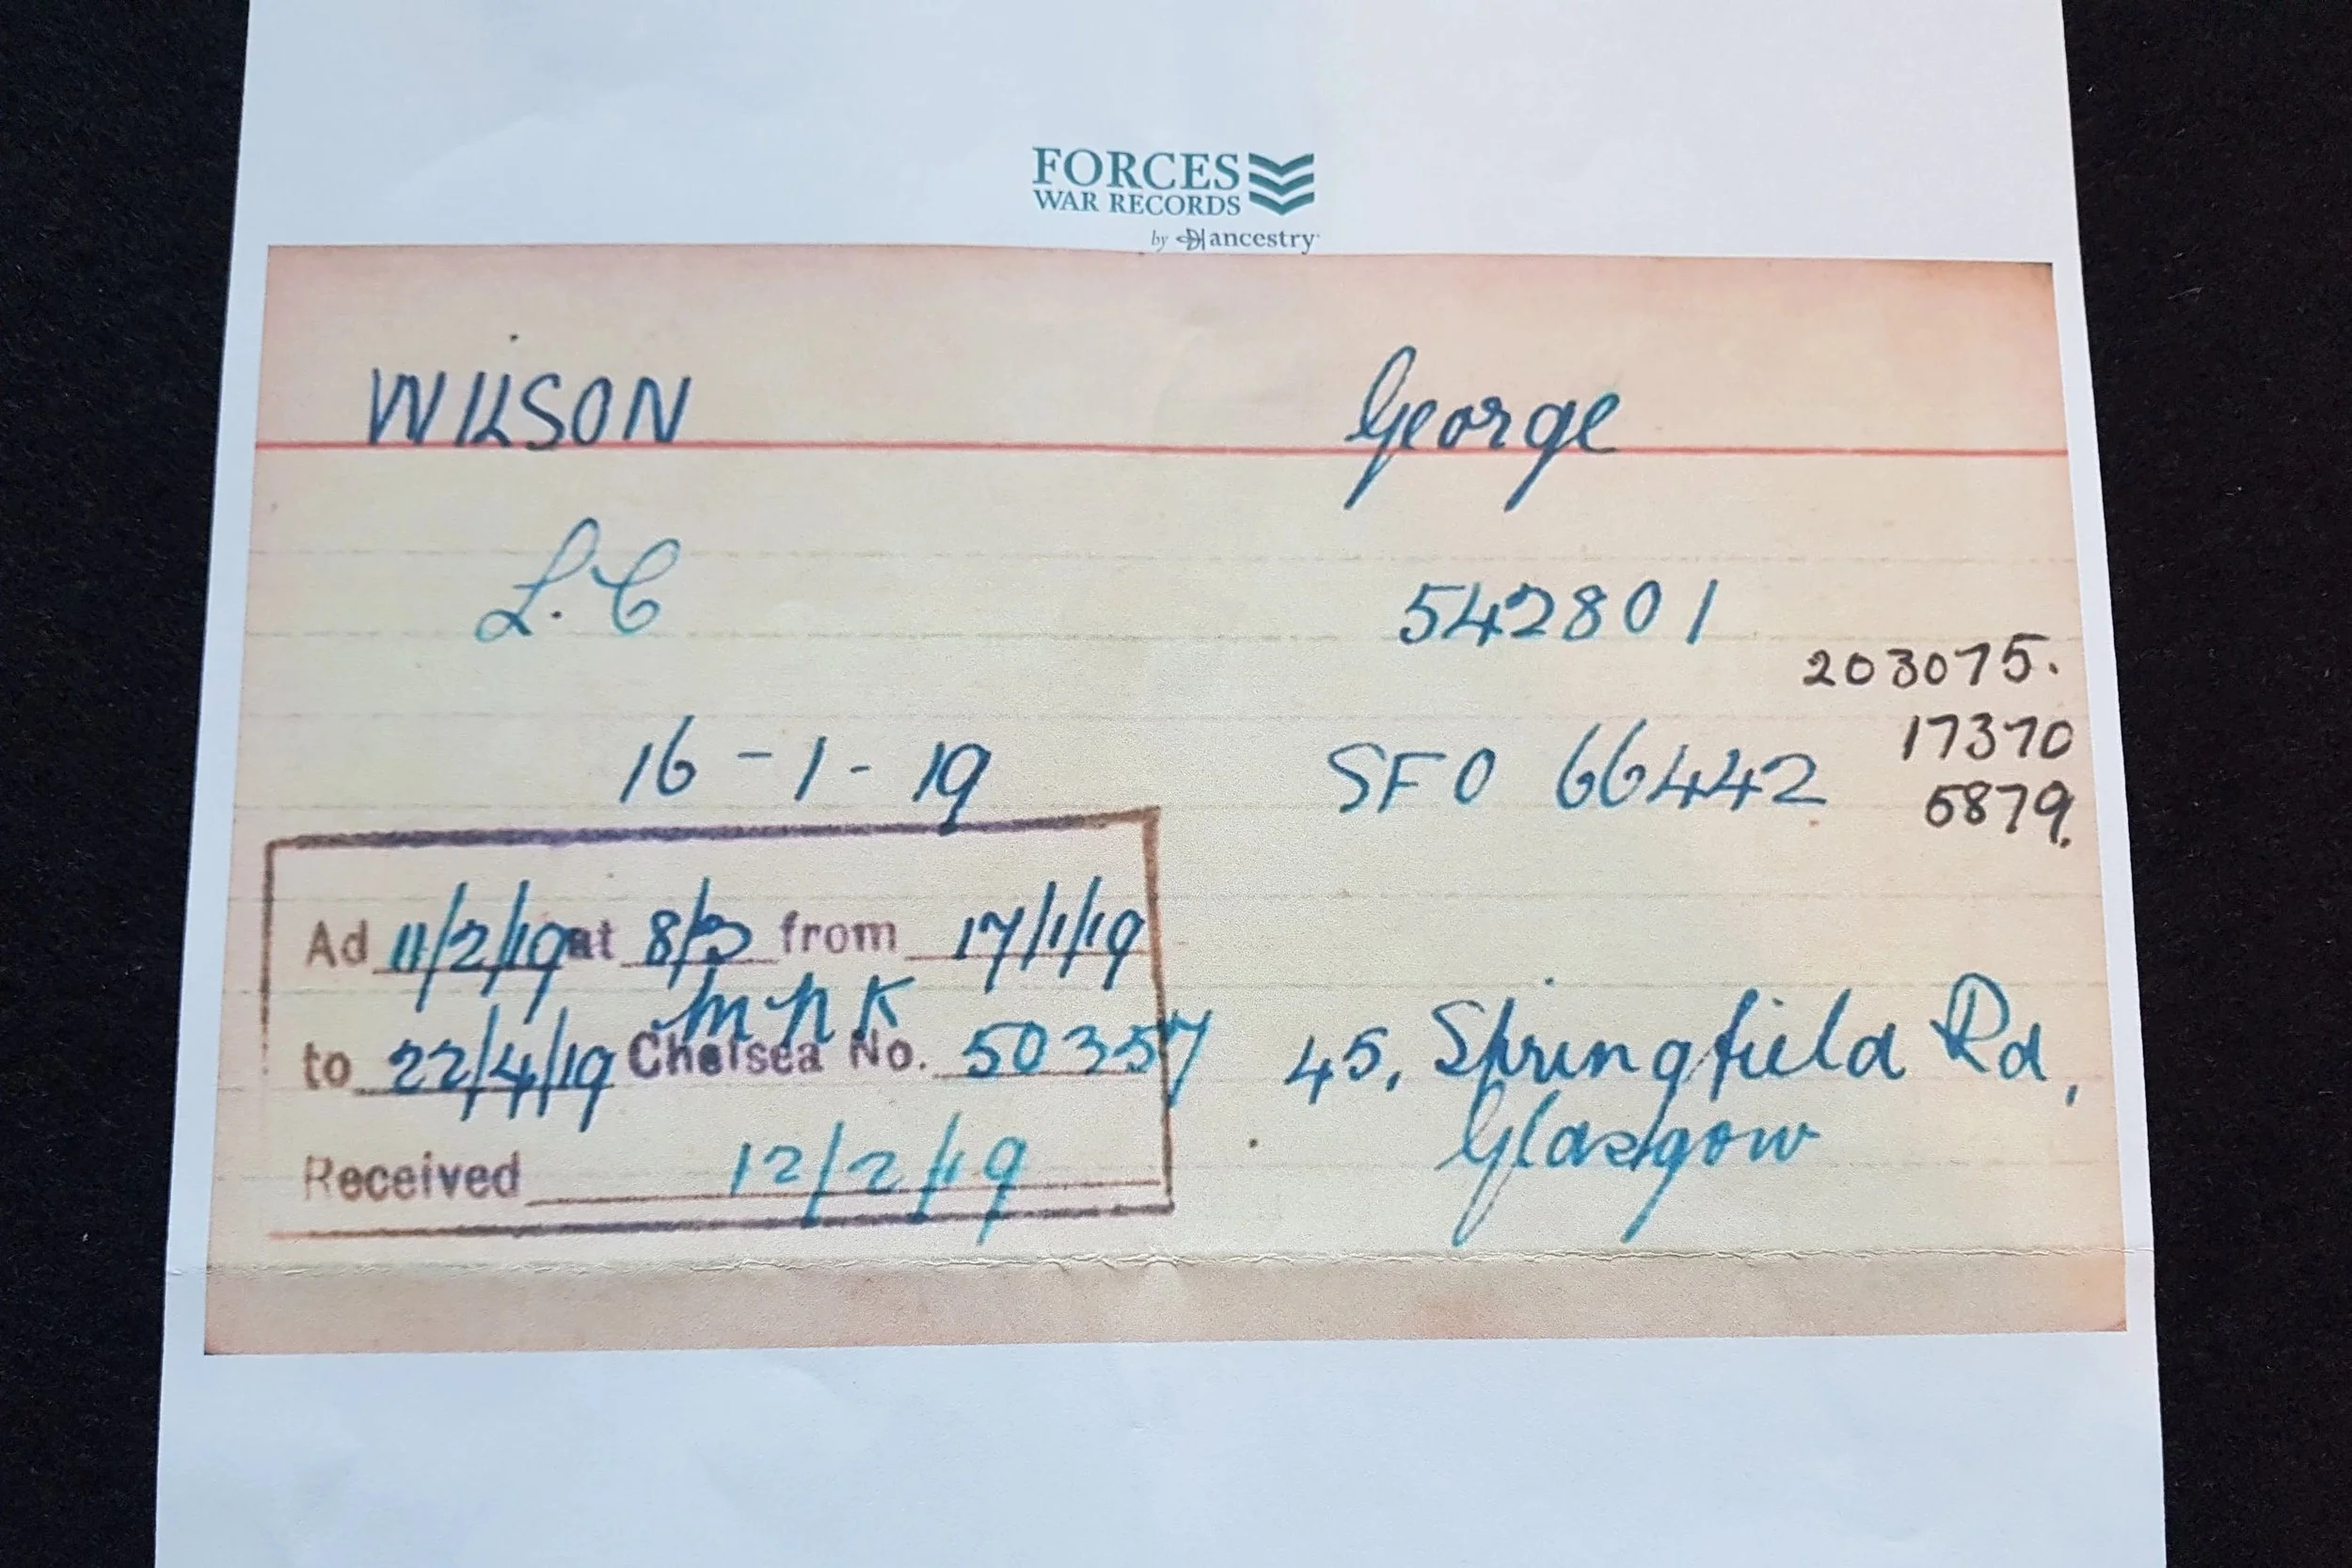 FORCES
WAR RECORDS
by ancestry
WILSON George
L.C 542801
203075.
16-1-19 SFO 66442 17370
6879.
Ad 11/2/19 at 8/3 from 17/1/19
to 22/4/19 Chelsea No. 50357
45, Springfield Rd,
Glasgow
Received 12/2/19